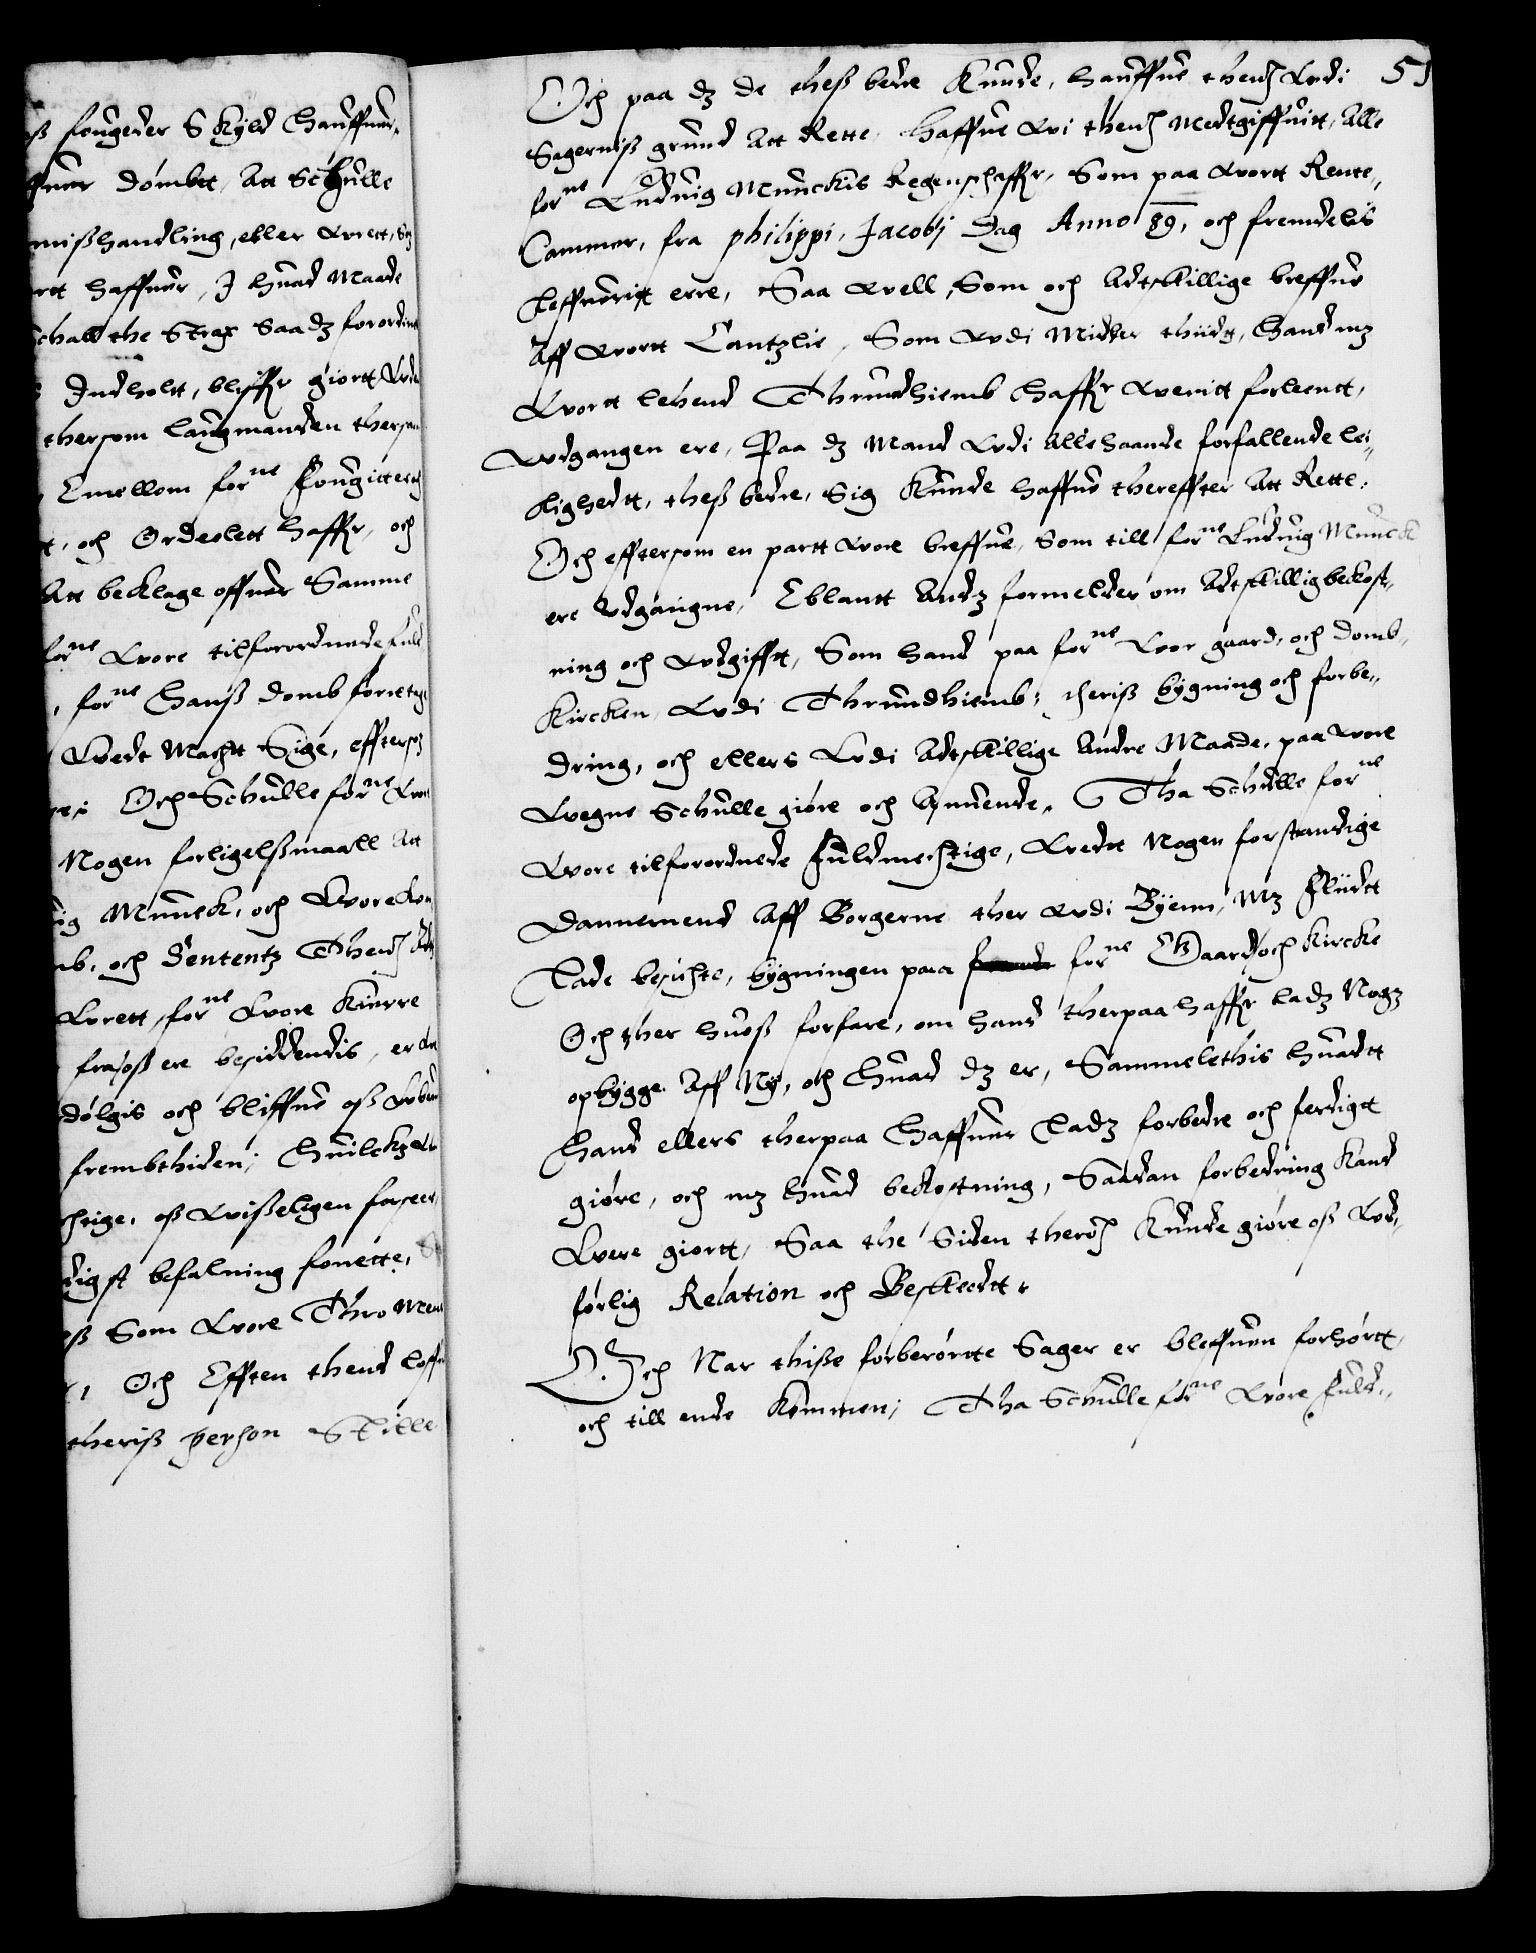 ß fougeder Skyld Hanffuer,
ffuer dömbtt, Att Schulle
mißhandling, eller Wrett,
rtt haffuer, J huad Maade
chall the Strax Saa dz forordint
Jndholt, bliffr giortt
thersom laugmanden thersom
Emellom forne
tt, och Ordelett haffr, och
Att beklage offuer Samme
forne Wore tilforordnede
, forne Hanß domb foretage
Wedt Macht Sige, effterso
Och Schulle forne Wore
Nogen forligelßmaall Att
ig Munck, och Wore
mb, och Sententz Thend
Wrett, forne Wore Kierre
fra oß ere besiddendis, er
dölgis och bliffue oß
frembthiden; Huilckz
chtige, oß Wißeligen forseer
digst befalning
oß Som Wore Thro
Och Efften thend
theriß person Stille
51
Och paa dz de theß bedre Kunde, hauffue thend Wdi
Sagerniß grund Att Rette, Haffue Wi thend Medtgiffuitt, Alle
forne Luduig Munckis Regenschaffr, Som paa Wortt Rente,,
Cammer, fra philippi, Jacobj Dag Anno 89, och fremdelis
leffuerit erre, Saa Well, Som och Adtskillige breffue
Aff Wortt Cantzlie, Som Wdi Midler thiidt, Hand mz
Wortt lehend Thrundhiemb Haffr Weritt forleentt,
Wdgangen ere, Paa dz Mand Wdi Allehaande forfallende lei,,
lighedtt, theß bedre, Sig Kunde haffue thereffter Att Rette,
Och efftersom en partt Wore breffue, Som till forne Luduig Munck
ere Udgangne, Eblantt Andz formelder om Adtskillig bekost,,
ning och Wdgifft, Som hand paa forne Wor gaard, och domb,,
Kircken Wdi Thrundhiemb; theriß bygning och forbe,,
dring, och ellers Wdi Adtskillige Andre Maade, paa Wore
Wegne Schulle giöre och Anuende, Tha Schulle forne
Wore tilforordnede Fuldmechtige, Wedtt Nogen forstandige
Dannemend Aff Borgerne ther Wdi Byenn, Mz Fliidtt
Lade besichte, bygningen paa forne Gaard och Kircke
Och ther huoß forfare, om hand therpaa haffr ladz Nogz
opbygge Aff Ny, och Huad dz er, Sammelethis huadtt
Hand ellers therpaa Haffuer Ladz forbedre och ferdigtt
giöre, och mz huad bekostning, Saadan forbedring Kand
Were giortt, Saa the Siden theroh Kunde giöre oß Wd,,
förlig Relation och Beskeedtt,
Och Nar thiße forberörtte Sager er bleffuen forhörtt,
och till ende Kommen; Tha Schulle forne Wore Fuld,,